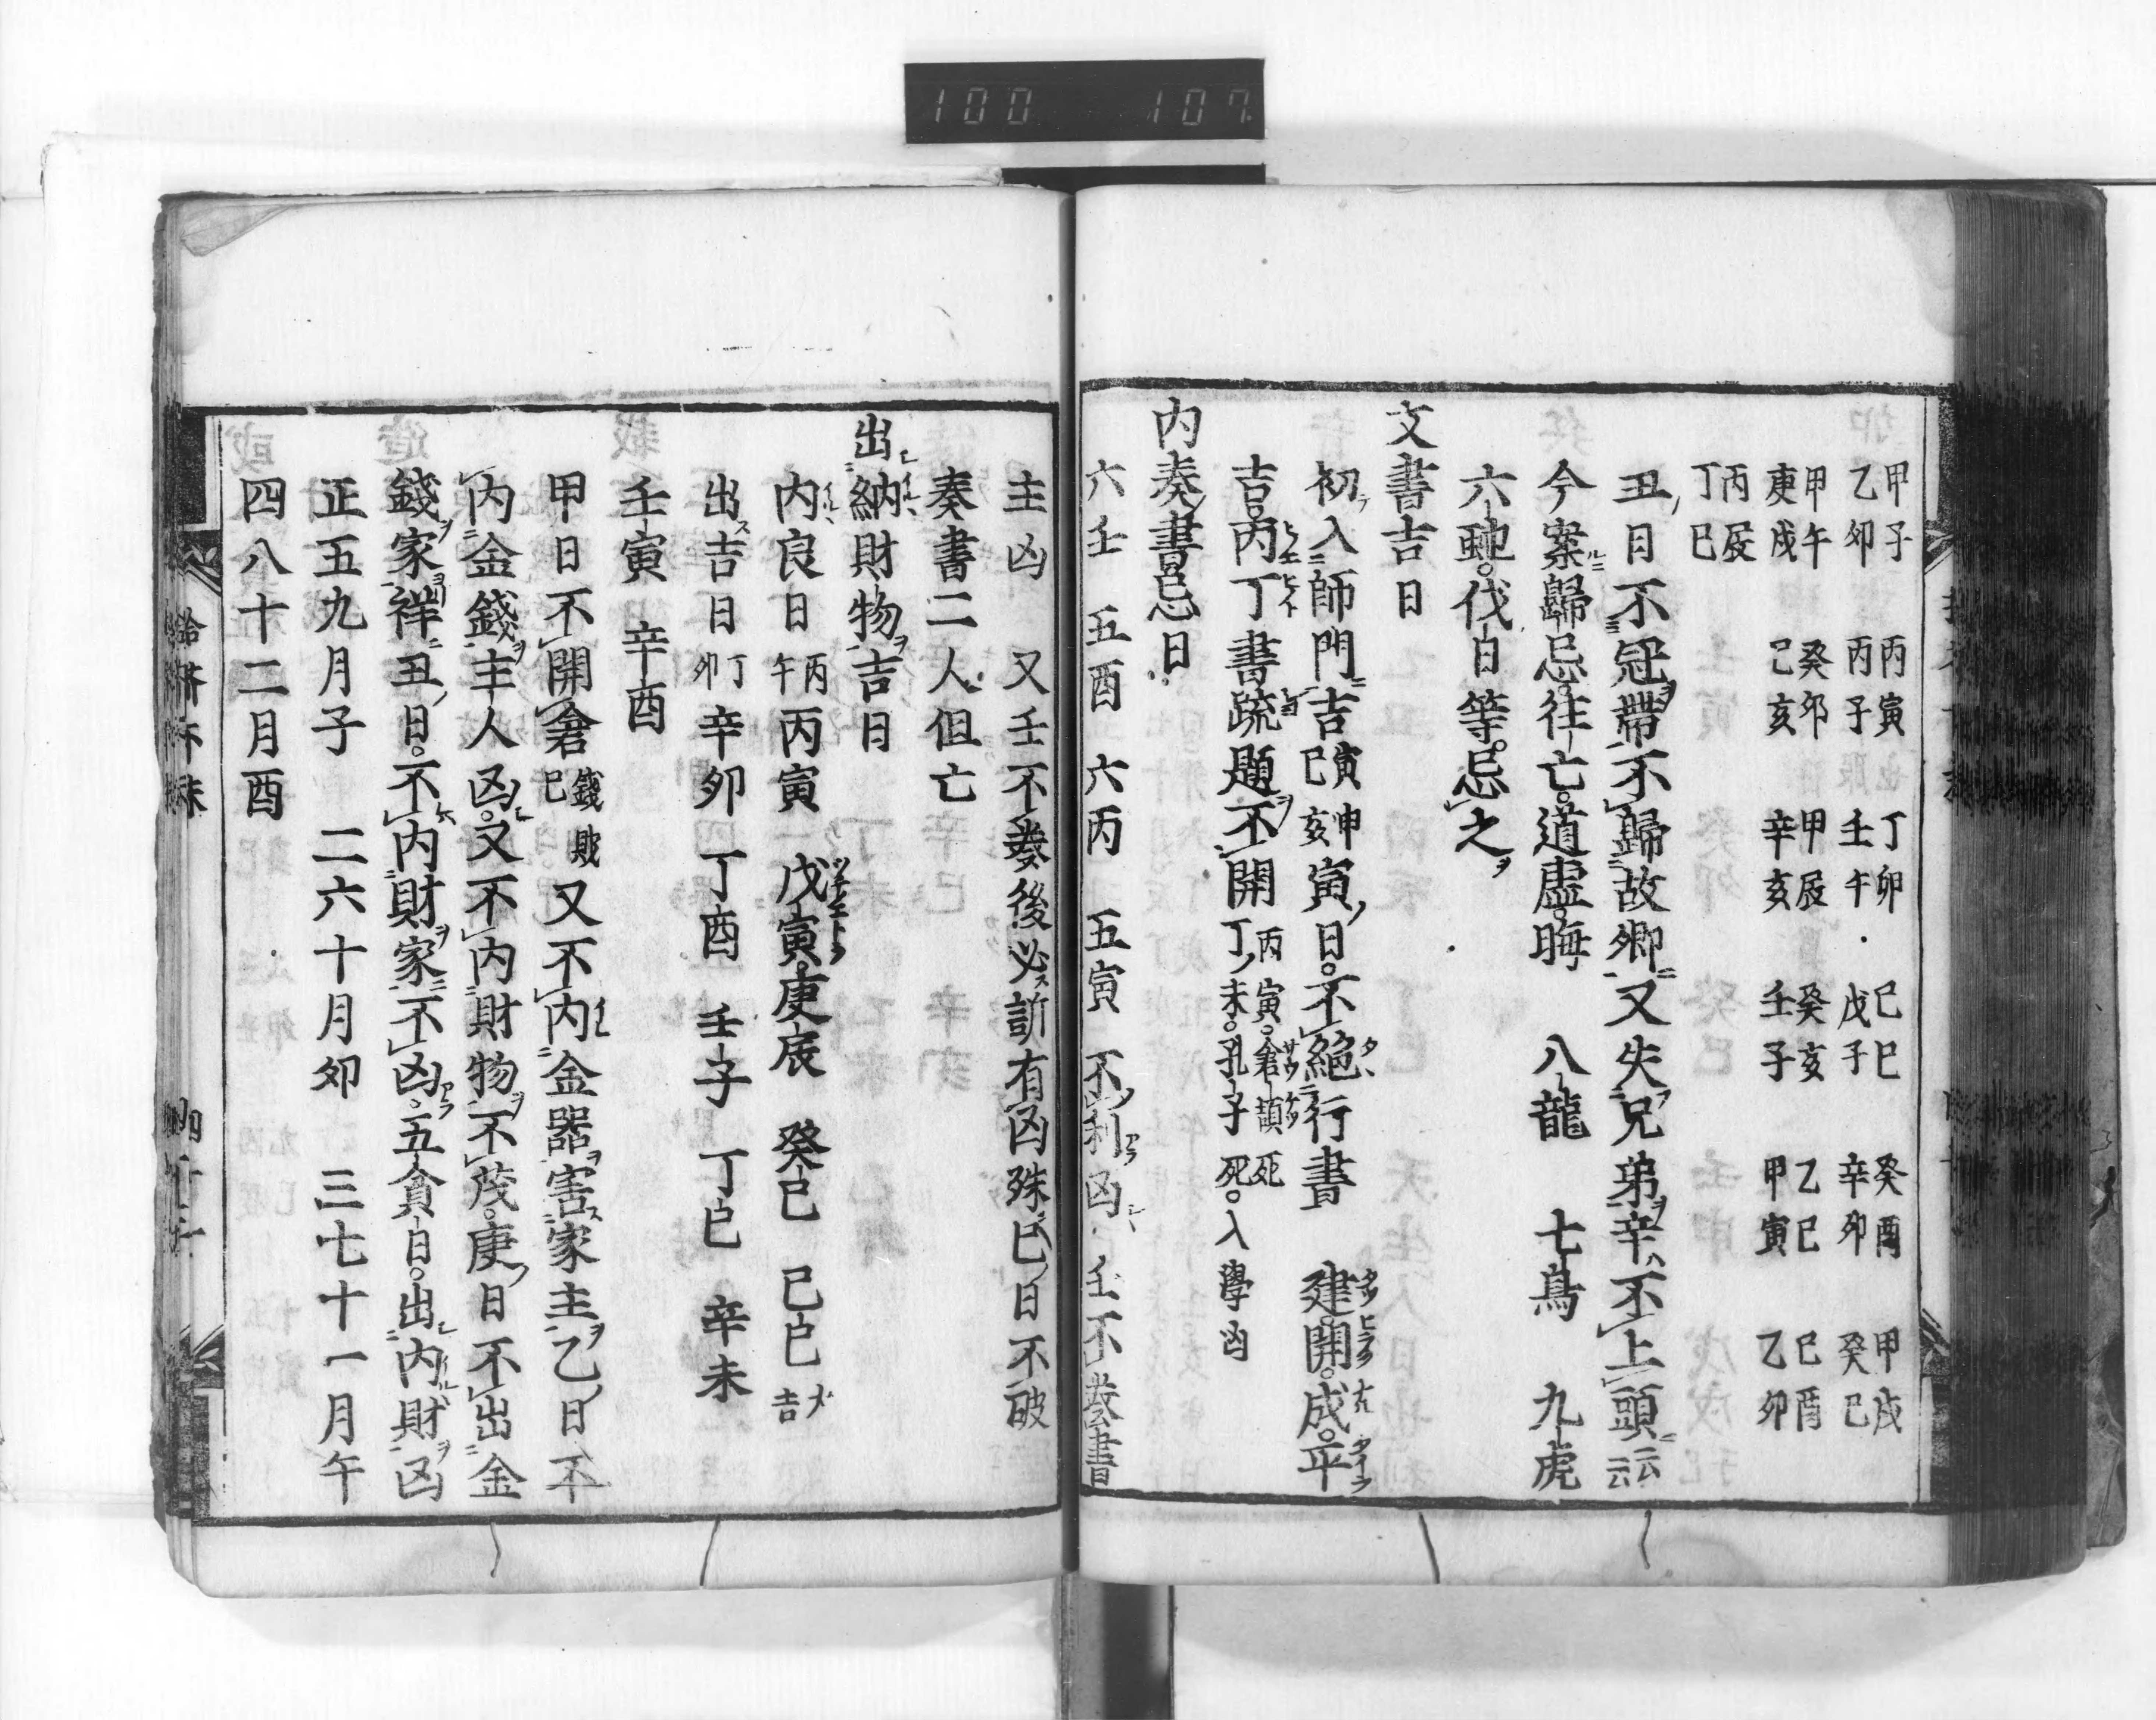 100 107
甲子 丙寅 丁卯 己巳 癸酉 甲戌
乙卯 丙子 壬午 戊子 辛卯 癸巳
甲午 癸卯 甲辰 癸亥 乙巳 己酉
庚戌 己亥 辛亥 壬子 甲寅 乙卯
丙辰
丁巳
丑ノ日不冠帶ヲ不歸故卿ニ又失兄弟ヲ辛ハ不上頭ニ云云
今案歸忌。往亡。道虛。晦 八龍 七鳥 九虎
六虵。伐日等。忌之ヲ
文書吉日
初入師門ニ吉寅申巳亥寅ノ日。不絕行書 建。開。成。平
吉。丙丁書疏題ヲ不開丙寅。倉頡死丁ノ未。孔子死。入學凶
内奏書忌日
六壬 五酉 六丙 五寅 不利凶 壬不發書
主凶 又壬不發後必訴有凶殊巳ノ日不破
奏書二人但亡
出納財物ヲ吉日
内良日丙午丙寅 戊寅。庚辰 癸巳 己巳大吉
出吉日丁卯辛卯 丁酉 壬子 丁巳 辛未
壬寅 辛酉
甲日不開倉錢敗巳又不内金器ヲ害家主ヲ乙ノ日不
内金錢ヲ主人凶。又不内財物ヲ不茂。庚ノ日不出金
錢ヲ家祥丑ノ日。不内財家不凶。五貪日。出内財ヲ凶
正五九月子 二六十月卯 三七十一月午
四八十二月酉